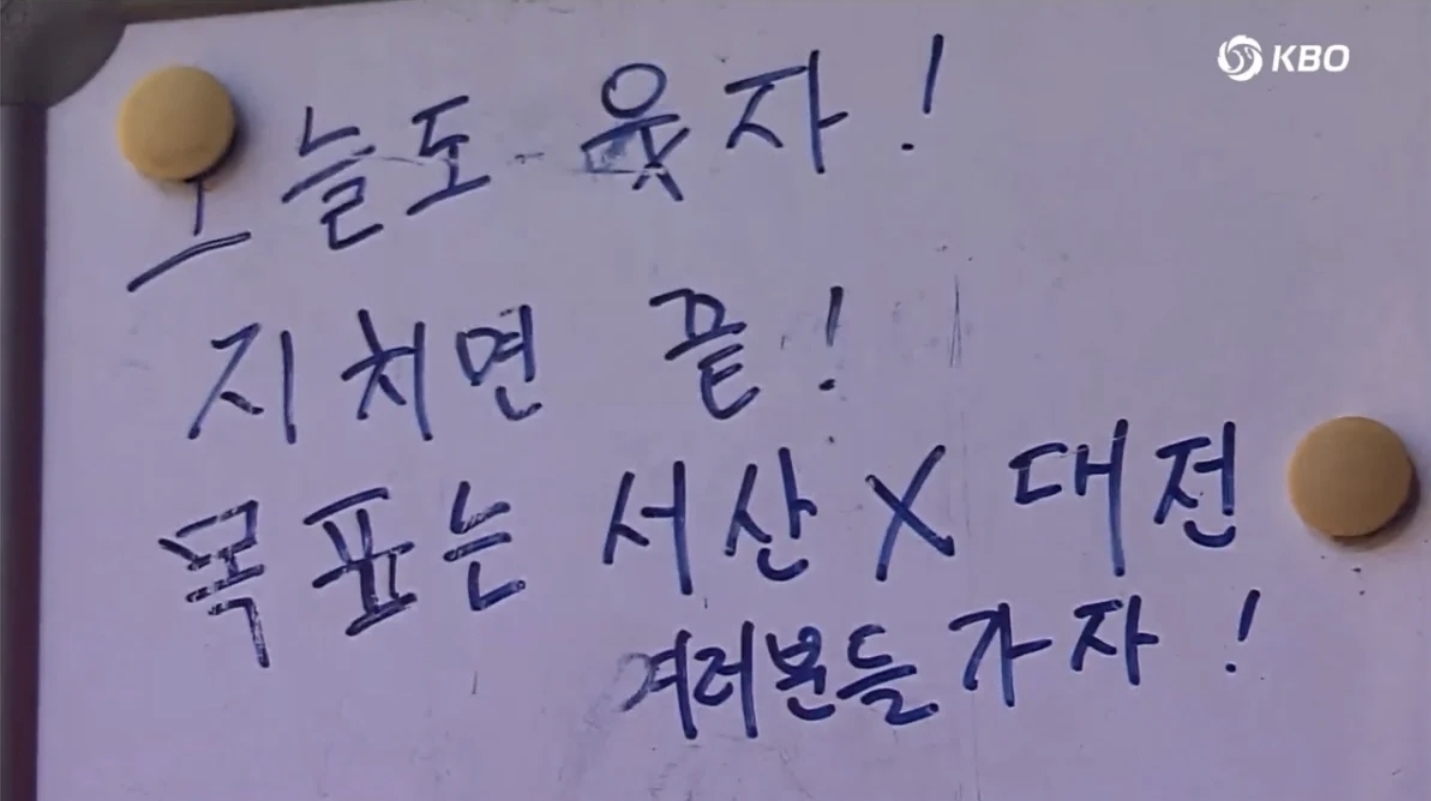 KBO
오늘도 웃자!
지치면 끝!
목표는 서산 X 대전
여러분들 가자!